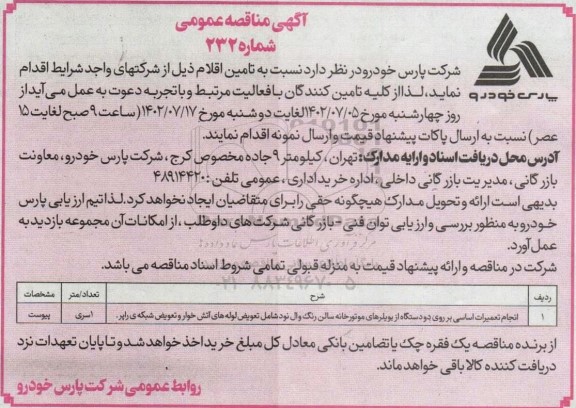 آگهی مناقصه عمومی
شماره ۲۳۲
پارس خودرو
شرکت پارس خودرو در نظر دارد نسبت به تامین اقلام ذیل از شرکتهای واجد شرایط اقدام
نماید، لذا از کلیه تامین کنندگان با فعالیت مرتبط و با تجربه دعوت به عمل می آید از
روز چهارشنبه مورخ ۱۴۰۲/۰۷/۰۵ لغایت دو شنبه مورخ ۱۴۰۲/۰۷/۱۷ ( ساعت ۹ صبح لغایت ۱۵
عصر) نسبت به ارسال پاکات پیشنهاد قیمت و ارسال نمونه اقدام نمایند.
آدرس محل دریافت اسناد و ارایه مدارک: تهران ، کیلومتر ۹ جاده مخصوص کرج ، شرکت پارس خودرو، معاونت
بازرگانی ، مدیریت بازرگانی داخلی ، اداره خرید اداری ، عمومی تلفن : ۴۸۹۱۴۴۲۰
بدیهی است ارائه و تحویل مدارک هیچگونه حقی را برای متقاضیان ایجاد نخواهد کرد. لذا تیم ارزیابی پارس
خودرو به منظور بررسی و ارزیابی توان فنی - بازرگانی شرکت های داوطلب ، از امکانات آن مجموعه بازدید به
عمل آورد.
شرکت در مناقصه و ارائه پیشنهاد قیمت به منزله قبولی تمامی شروط اسناد مناقصه می باشد.
ردیف شرح تعداد/متر مشخصات
۱ انجام تعمیرات اساسی بر روی دو دستگاه از بویلرهای موتورخانه سالن رنگ وال نود شامل تعویض لوله های آتش خوار و تعویض شبکه ی رایر. ۱ سری پیوست
از برنده مناقصه یک فقره چک یا تضامین بانکی معادل کل مبلغ خرید اخذ خواهد شد و تا پایان تعهدات نزد
دریافت کننده کالا باقی خواهد ماند.
روابط عمومی شرکت پارس خودرو